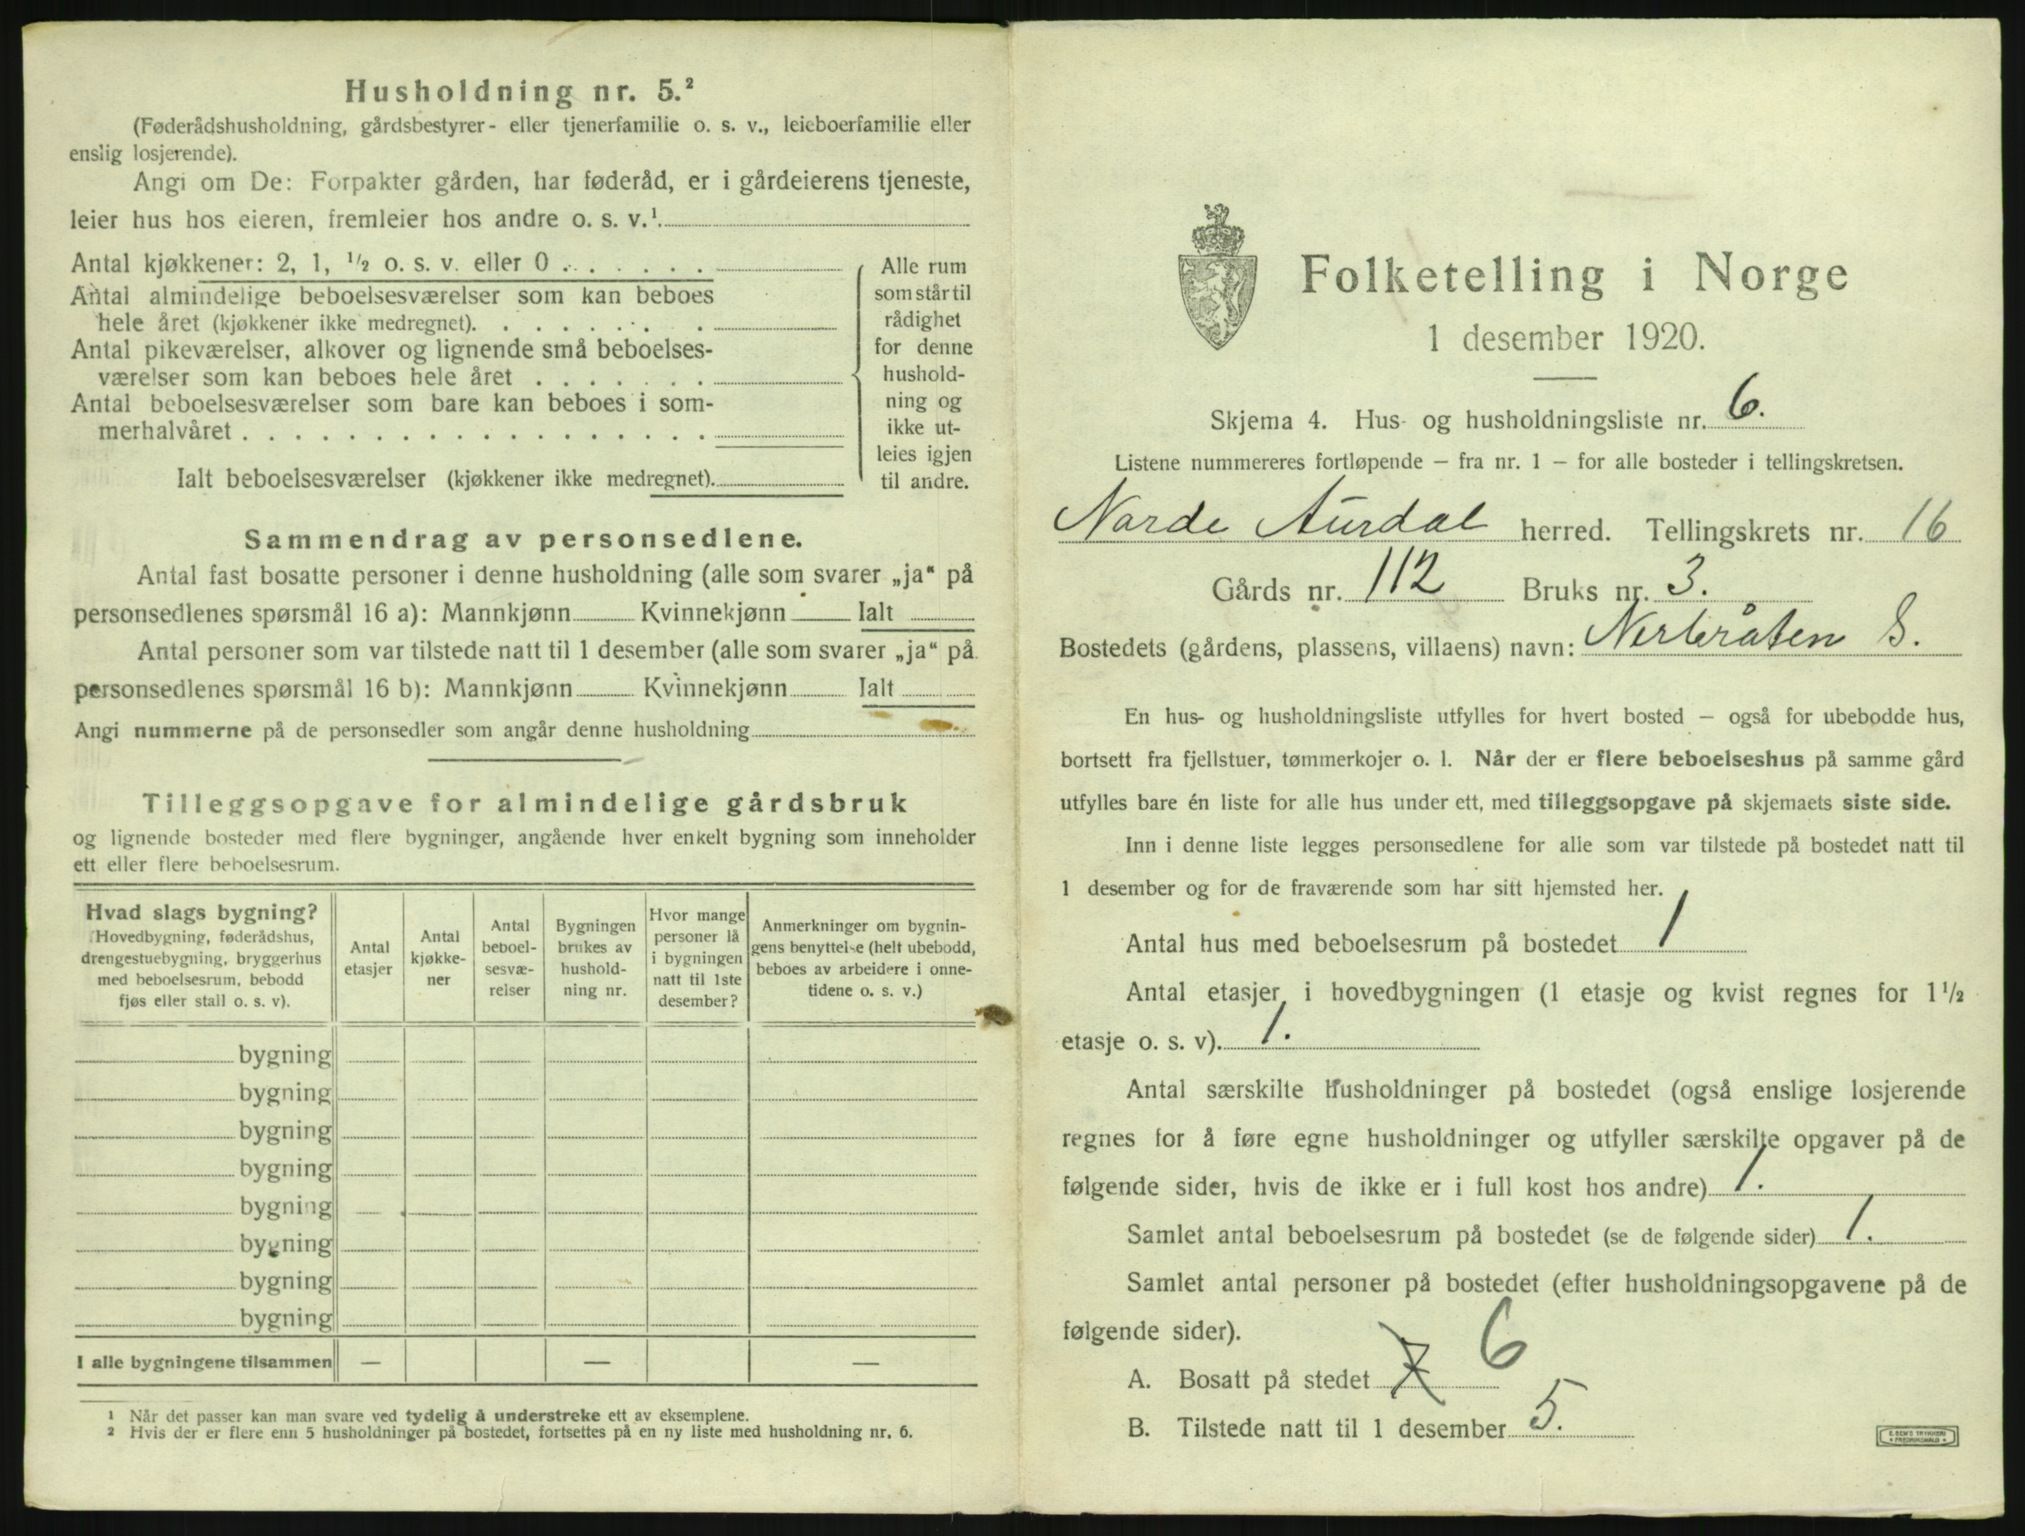 Husholdning nr. 5.²
(Føderådshusholdning, gårdsbestyrer- eller tjenerfamilie o. s. v., leieboerfamilie eller
enslig losjerende).
Angi om De: Forpakter gården, har føderåd, er i gårdeierens tjeneste,
leier hus hos eieren, fremleier hos andre o. s. v.¹
Antal kjøkkener: 2, 1, ½ o. s. v. eller 0
Antal almindelige beboelsesværelser som kan beboes
hele året (kjøkkener ikke medregnet).
Antal pikeværelser, alkover og lignende små beboelses-
værelser som kan beboes hele året
Antal beboelsesværelser som bare kan beboes i som-
merhalvåret
Ialt beboelsesværelser (kjøkkener ikke medregnet).
Alle rum
som står til
rådighet
for denne
hushold-
ning og
ikke ut-
leies igjen
til andre.
Sammendrag av personsedlene.
Antal fast bosatte personer i denne husholdning (alle som svarer „ja“ på
personsedlenes spørsmål 16 a): Mannkjønn Kvinnekjønn Ialt
Antal personer som var tilstede natt til 1 desember (alle som svarer „ja“ på
personsedlenes spørsmål 16 b): Mannkjønn Kvinnekjønn Ialt
Angi nummerne på de personsedler som angår denne husholdning
Tilleggsopgave for almindelige gårdsbruk
og lignende bosteder med flere bygninger, angående hver enkelt bygning som inneholder
ett eller flere beboelsesrum.
Hvad slags bygning?
(Hovedbygning, føderådshus,
drengestuebygning, bryggerhus
med beboelsesrum, bebodd
fjøs eller stall o. s. v).
Antal
etasjer
Antal
kjøkke-
ner
Antal
beboel-
sesvæ-
relser
Bygningen
brukes av
hushold-
ning nr.
Hvor mange
personer lå
i bygningen
natt til 1ste
desember?
Anmerkninger om bygnin-
gens benyttelse (helt ubebodd,
beboes av arbeidere i onne-
tidene o. s. v.)
bygning
bygning
bygning
bygning
bygning
bygning
bygning
bygning
I alle bygningene tilsammen — — —
¹ Når det passer kan man svare ved tydelig å understreke ett av eksemplene.
² Hvis der er flere enn 5 husholdninger på bostedet, fortsettes på en ny liste med husholdning nr. 6.
Folketelling i Norge
1 desember 1920.
Skjema 4. Hus- og husholdningsliste nr. 6.
Listene nummereres fortløpende – fra nr. 1 – for alle bosteder i tellingskretsen.
Nordre Aurdal herred. Tellingskrets nr. 16
Gårds nr. 112 Bruks nr. 3.
Bostedets (gårdens, plassens, villaens) navn: Nerbråten S.
En hus- og husholdningsliste utfylles for hvert bosted – også for ubebodde hus,
bortsett fra fjellstuer, tømmerkojer o. l. Når der er flere beboelseshus på samme gård
utfylles bare én liste for alle hus under ett, med tilleggsopgave på skjemaets siste side.
Inn i denne liste legges personsedlene for alle som var tilstede på bostedet natt til
1 desember og for de fraværende som har sitt hjemsted her.
Antal hus med beboelsesrum på bostedet 1
Antal etasjer i hovedbygningen (1 etasje og kvist regnes for 1½
etasje o. s. v). 1.
Antal særskilte husholdninger på bostedet (også enslige losjerende
regnes for å føre egne husholdninger og utfyller særskilte opgaver på de
følgende sider, hvis de ikke er i full kost hos andre) 1.
Samlet antal beboelsesrum på bostedet (se de følgende sider) 1.
Samlet antal personer på bostedet (efter husholdningsopgavene på de
følgende sider).
A. Bosatt på stedet 7 6
B. Tilstede natt til 1 desember 5.